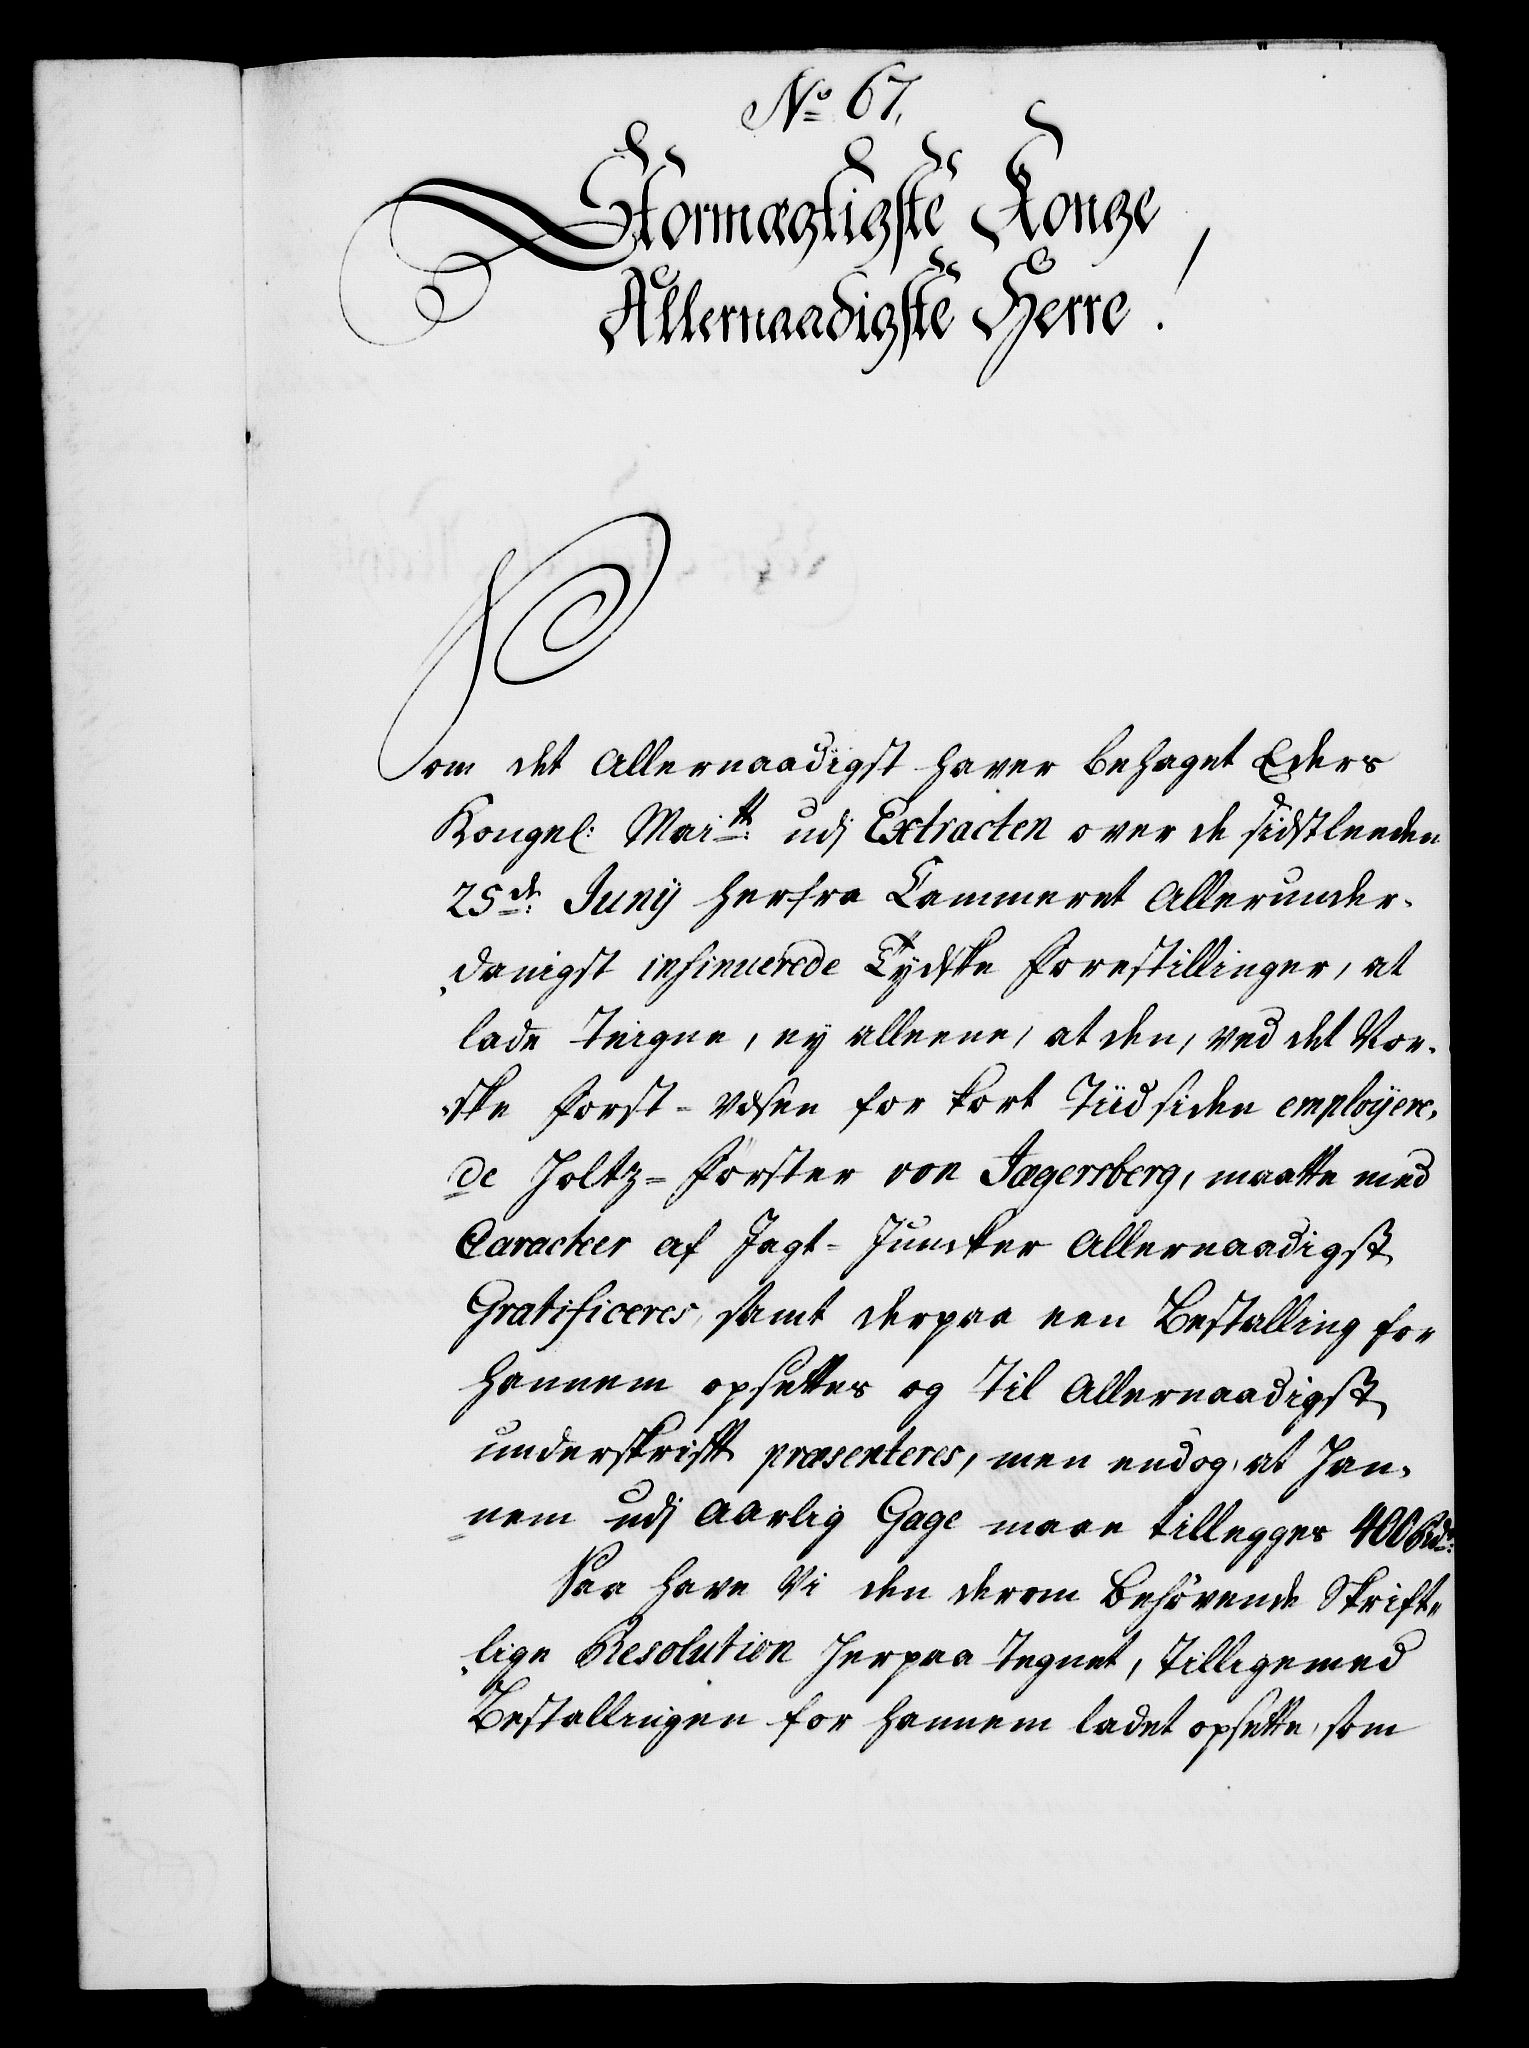 No 67.
Stormægtigste Konge
Allernaadigste Herre!
Som det Allernaadigst haver behaget Eders
Kongel: Maitt: udj Extracten over de sidstleeden
25de Junij herfra Cammeret Allerunder-
danigst insinuerede Tydske Forestillinger, at
lade teigne, ej alleene, at den, ved det Nor-
ske Forst-væsen for kort Tiid siden employere-
de Holtz-Førster von Jægersberg, maatte med
Caracteer af Jagt-Juncker Allernaadigst
Gratificeres, samt derpaa een Bestalling for
hannem opsettes og til Allernaadigst
underskrift præsenteres, men endog, at Han-
nem udj aarlig Gage maae tillegges 400 Rdr:
Saa have Vi den derom behövende Skrift-
lige Resolution herpaa tegnet, tilligemed
Bestallingen for hannem ladet opsette, som